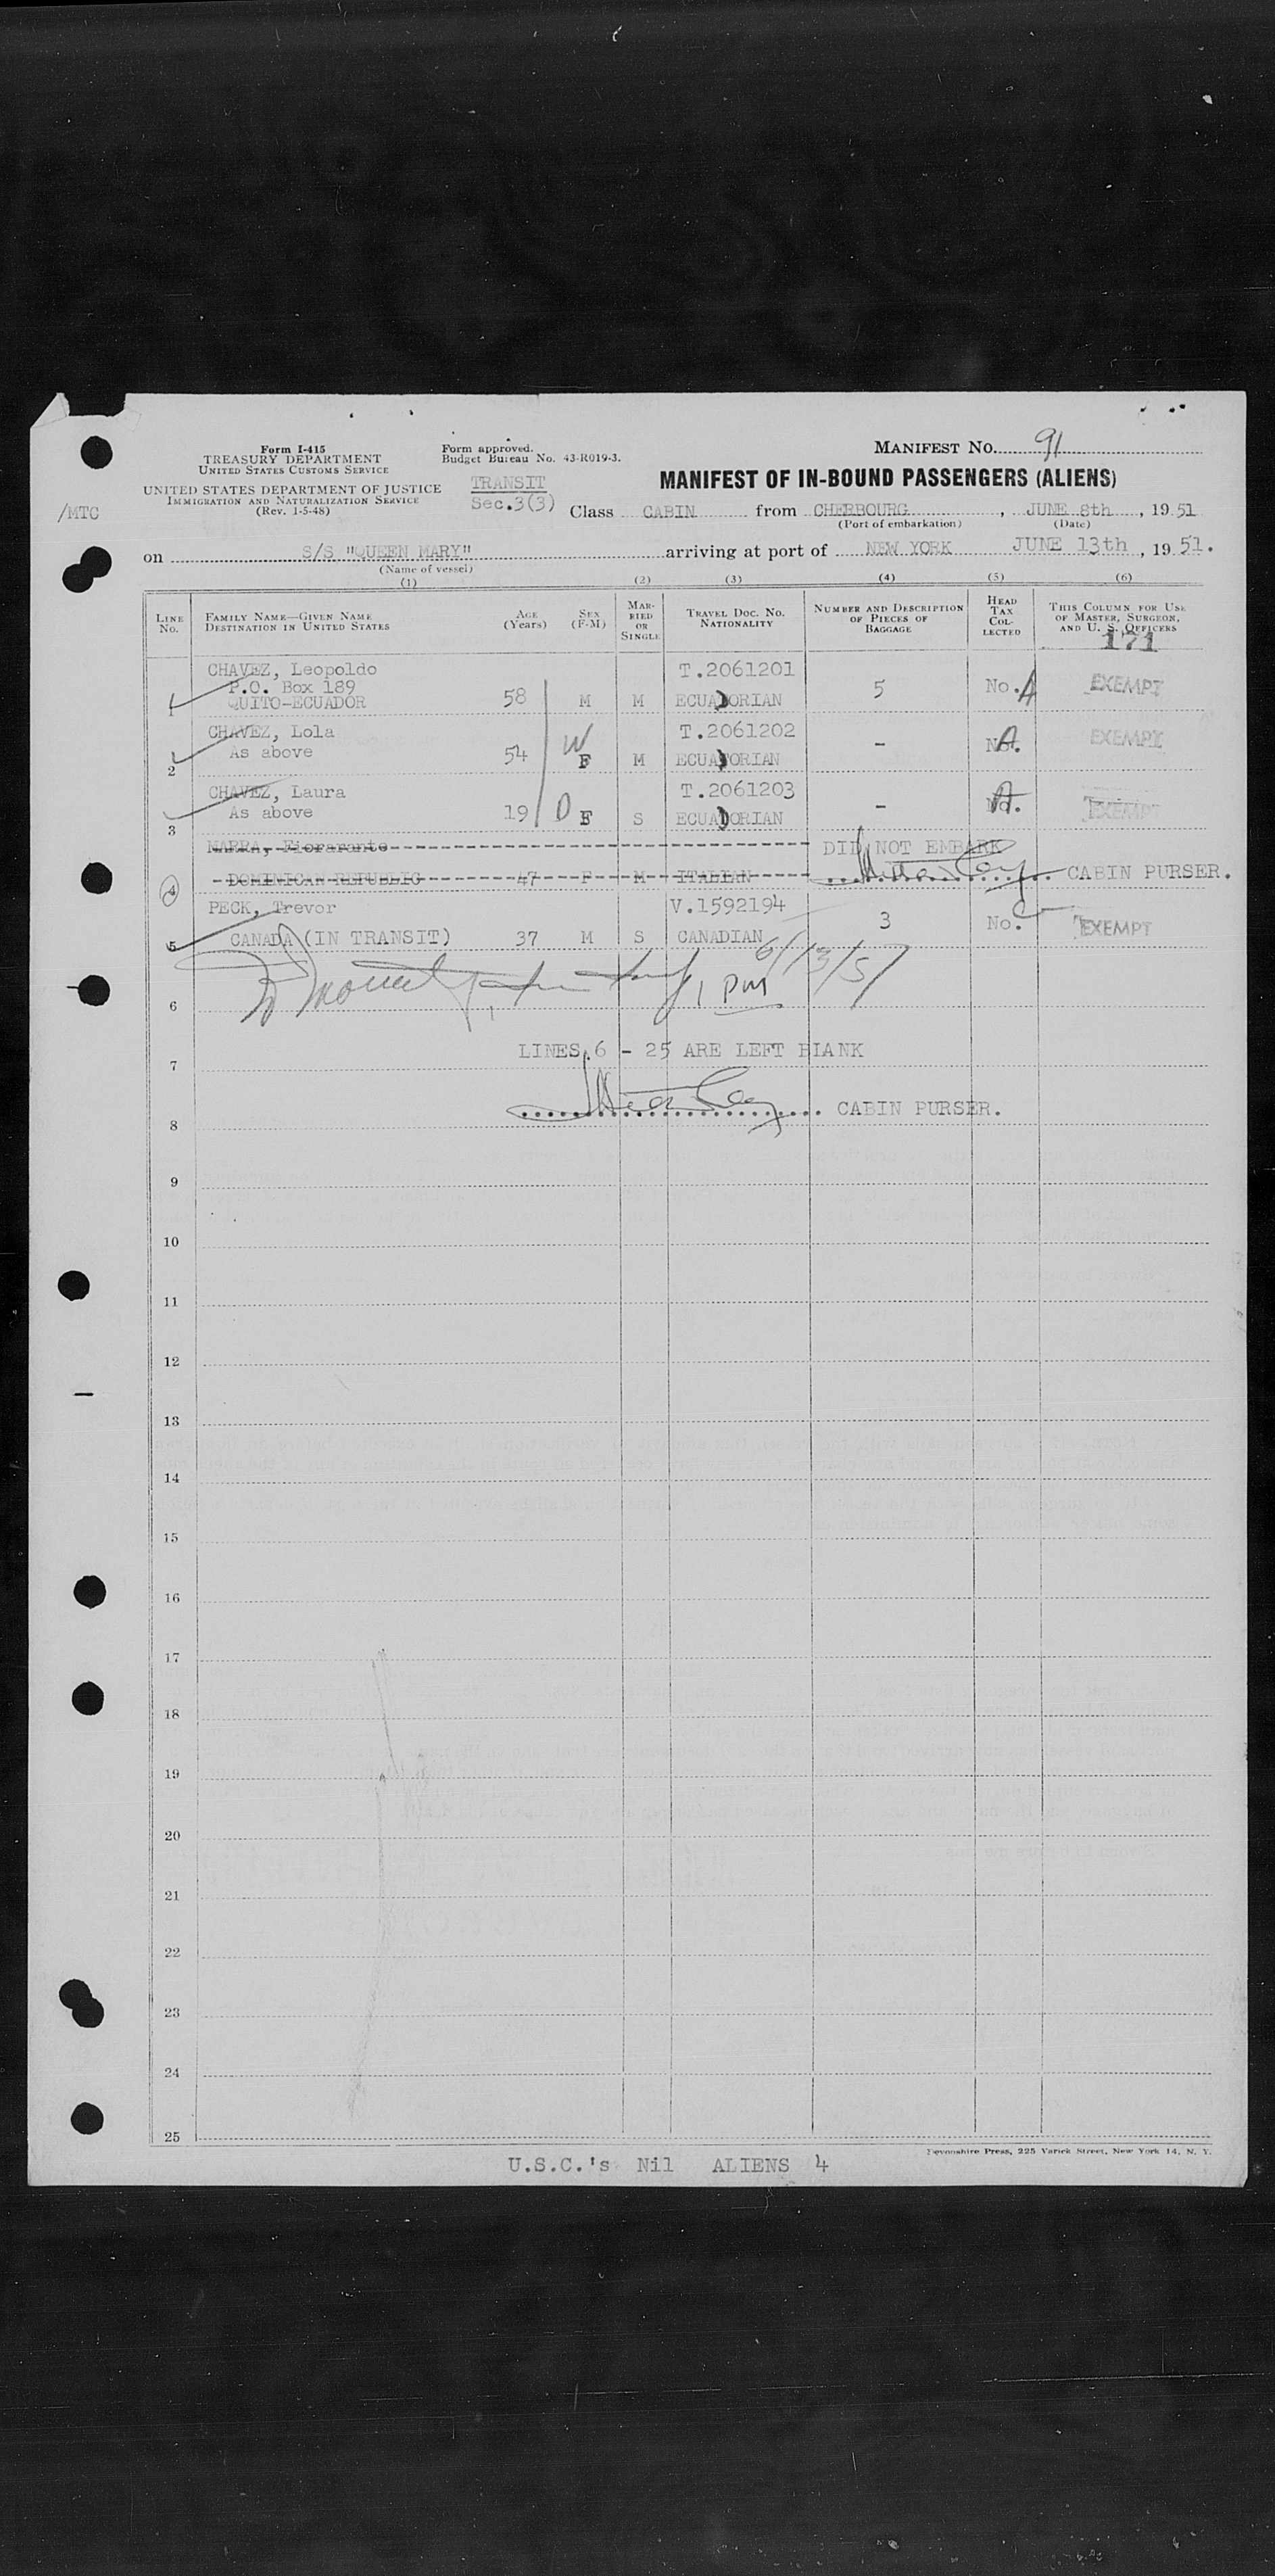 Form I-415
TREASURY DEPARTMENT
UNITED STATES CUSTOMS SERVICE
Form approved.
Budget Bureau No. 43-R019-3.
MANIFEST No. 91
UNITED STATES DEPARTMENT OF JUSTICE
IMMIGRATION AND NATURALIZATION SERVICE
(Rev. 1-5-48)
TRANSIT
Sec.3(3)
MANIFEST OF IN-BOUND PASSENGERS (ALIENS)
/MTC
Class CABIN from CHERBOURG, JUNE 8th, 1951
(Port of embarkation) (Date)
on S/S "QUEEN MARY" arriving at port of NEW YORK JUNE 13th, 1951.
(Name of vessel)
(1) (2) (3) (4) (5) (6)
LINE No.
FAMILY NAME—GIVEN NAME
DESTINATION IN UNITED STATES
AGE (Years)
SEX (F-M)
MARRIED OR SINGLE
TRAVEL DOC. NO. NATIONALITY
NUMBER AND DESCRIPTION OF PIECES OF BAGGAGE
HEAD TAX COLLECTED
THIS COLUMN FOR USE OF MASTER, SURGEON, AND U. S. OFFICERS
171
CHAVEZ, Leopoldo T.2061201
P.O. Box 189 5 No. A EXEMPT
1 QUITO-ECUADOR 58 M M ECUADORIAN
CHAVEZ, Lola T.2061202
As above W - No. A EXEMPT
2 54 F M ECUADORIAN
CHAVEZ, Laura T.2061203
As above 19 D F S ECUADORIAN - No. A EXEMPT
3
MARRA, Fiorarante DID NOT EMBARK
4 DOMINICAN REPUBLIC 47 F M ITALIAN CABIN PURSER.
PECK, Trevor V.1592194
5 CANADA (IN TRANSIT) 37 M S CANADIAN 3 No. EXEMPT
1 PM 6/13/51
6
LINES 6 - 25 ARE LEFT BLANK
7
CABIN PURSER.
8
9
10
11
12
13
14
15
16
17
18
19
20
21
22
23
24
25
Devonshire Press, 225 Varick Street, New York 14, N. Y.
U.S.C.'s Nil ALIENS 4